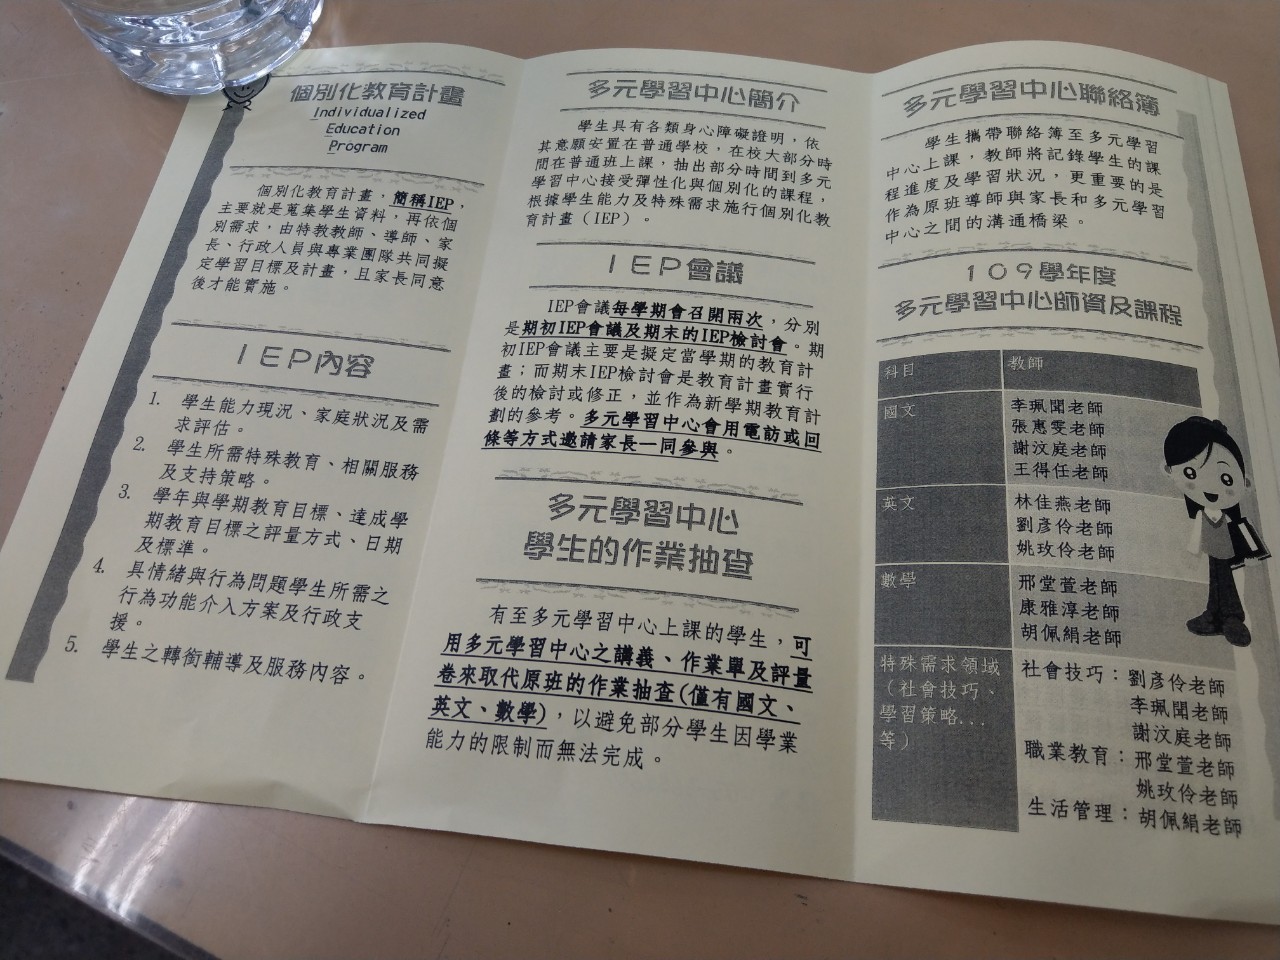 個別化教育計畫
Individualized
Education
Program
個別化教育計畫，簡稱IEP，
主要就是蒐集學生資料，再依個
別需求，由特教教師、導師、家
長、行政人員與專業團隊共同擬
定學習目標及計畫，且家長同意
後才能實施。
IEP內容
1. 學生能力現況、家庭狀況及需
求評估。
2. 學生所需特殊教育、相關服務
及支持策略。
3. 學年與學期教育目標、達成學
期教育目標之評量方式、日期
及標準。
4. 具情緒與行為問題學生所需之
行為功能介入方案及行政支
援。
5. 學生之轉銜輔導及服務內容。
多元學習中心簡介
學生具有各類身心障礙證明，依
其意願安置在普通學校，在校大部分時
間在普通班上課，抽出部分時間到多元
學習中心接受彈性化與個別化的課程，
根據學生能力及特殊需求施行個別化教
育計畫（IEP）。
IEP會議
IEP會議每學期會召開兩次，分別
是期初IEP會議及期末的IEP檢討會。期
初IEP會議主要是擬定當學期的教育計
畫；而期末IEP檢討會是教育計畫實行
後的檢討或修正，並作為新學期教育計
劃的參考。多元學習中心會用電訪或回
條等方式邀請家長一同參與。
多元學習中心
學生的作業抽查
有至多元學習中心上課的學生，可
用多元學習中心之講義、作業單及評量
卷來取代原班的作業抽查(僅有國文、
英文、數學)，以避免部分學生因學業
能力的限制而無法完成。
多元學習中心聯絡簿
學生攜帶聯絡簿至多元學習
中心上課，教師將記錄學生的課
程進度及學習狀況，更重要的是
作為原班導師與家長和多元學習
中心之間的溝通橋梁。
109學年度
多元學習中心師資及課程
科目 教師
國文 李珮聞老師
張惠雯老師
謝汶庭老師
王得任老師
英文 林佳燕老師
劉彥伶老師
姚玫伶老師
數學 邢堂萱老師
康雅淳老師
胡佩絹老師
特殊需求領域 社會技巧：劉彥伶老師
（社會技巧、 李珮聞老師
學習策略... 謝汶庭老師
等） 職業教育：邢堂萱老師
姚玫伶老師
生活管理：胡佩絹老師